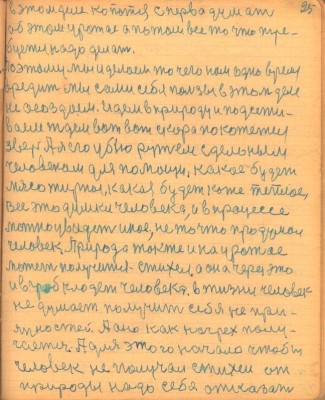 25
в этом деле копотся сперва думат
об этом урожае а потом все то что тре-
буется надо делат.
Поэтому мы и делаем то чего нам одно время
вредит мы сами себя ползы в этом деле
не осоздаем. Идем в природу и подсти-
ваем ждем вот вот скоро покажется
зверь А я его убю ружем сделоным
человеком для помощи, какое будет
мясо жирное, какая будет кожа теплое,
все это думки человека, и в процессе
можно увидет иное, не то что продумол
человек. Природа также и на урожае
может получится стихеи, а она через это
и в гроб кладет человека, в жизни человек
не думает получит себя не при-
ятностей. А оно как на грех полу-
чается. А для этого начало чтобы
человек не получал стихеи от
природы надо себя отказат